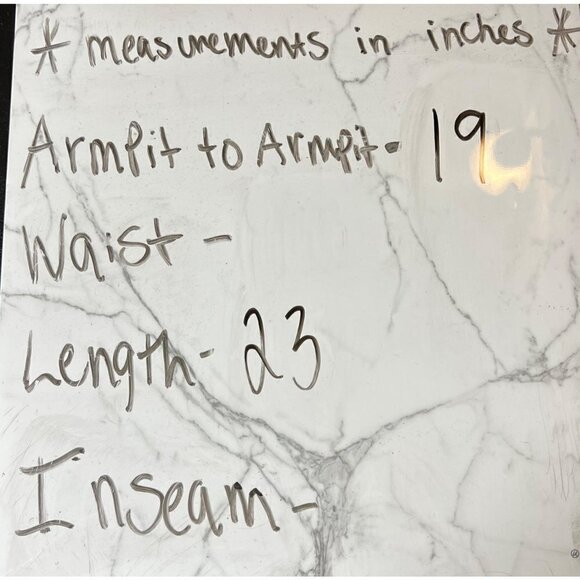 * measurements in inches *
Armpit to Armpit- 19
Waist -
Length- 23
Inseam -